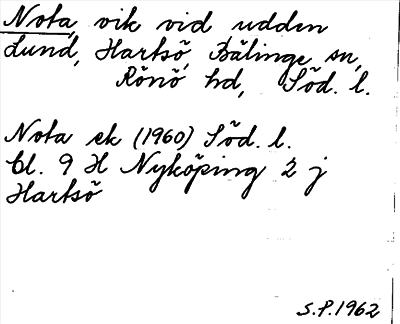 Nota, vik vid udden
Lund, Hartsö, Bälinge sn,
Rönö hd, Söd. l.
Nota ek (1960) Söd. l.
bl. 9 H Nyköping 2 j
Hartsö
S.P. 1962